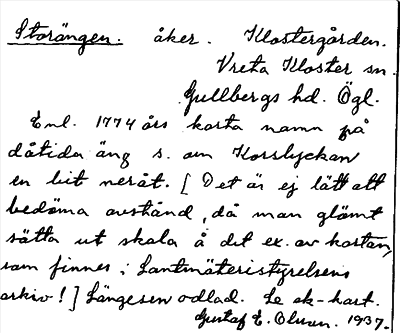 Storängen. åker. Klostergården.
Vreta Kloster sn.
Gullbergs hd. Ögl.
Enl. 1774 års karta namn på
dåtida äng s. om Korslyckan
en bit neråt. [Det är ej lätt att
bedöma avstånd, då man glömt
sätta ut skala å det ex. av kartan,
som finnes i Lantmäteristyrelsens
arkiv!] Längesen odlad. Se ek-kart.
Gustaf E. Olsson. 1937.